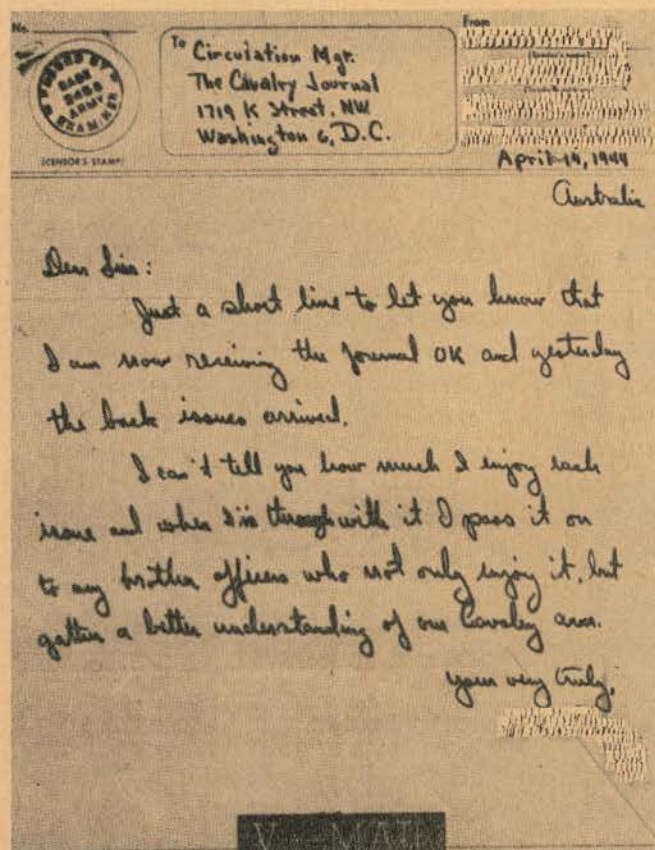 No.
From
PASSED BY
BASE
ARMY
EXAMINER
(CENSOR'S STAMP)
To Circulation Mgr.
The Cavalry Journal
1719 K Street, NW
Washington 6, D.C.
April 14, 1944
Australia
Dear Sir:
Just a short line to let you know that
I am now receiving the Journal OK and yesterday
the back issues arrived.
I can't tell you how much I enjoy each
issue and when I'm through with it I pass it on
to my brother officers who not only enjoy it, but
gather a better understanding of our Cavalry arm.
Yours very truly,
V - MAIL